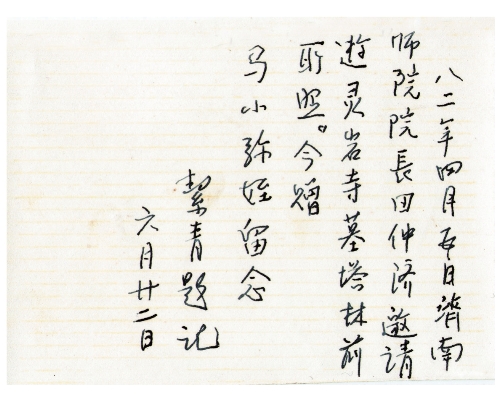 八二年四月五日濟南
师院院長田仲济邀請
遊灵岩寺墓塔林前
所照。今贈
马小弥姪留念
絜青题记
六月廿二日